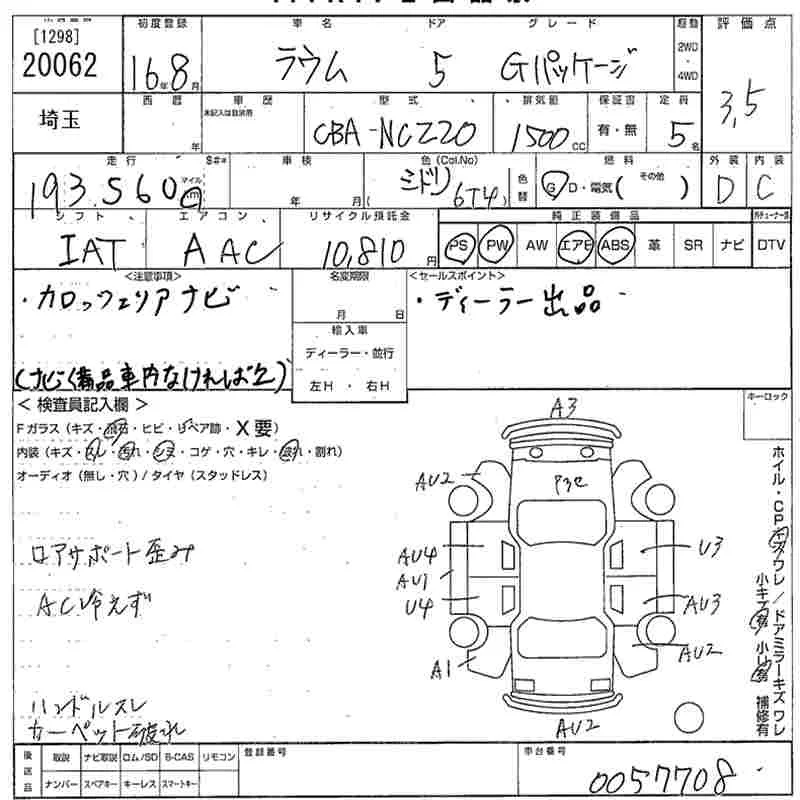 [1298]
20062
初度登録
16年8月
車名
ラウム
ドア
5
グレード
Gパッケージ
駆動
2WD
4WD
評価点
3,5
埼玉
西暦
年
車歴
未記入は自家用
型式
CBA-NCZ20
排気量
1500cc
保証書
有・無
定員
5名
走行
193,560
マイル
km
S#*
車検
年 月
色(Col.No)
ミドリ
(6T4)
色替
燃料
G・D・電気( その他 )
外装
D
内装
C
シフト
IAT
エアコン
AAC
リサイクル預託金
10,810円
純正装備品
PS PW AW エアB ABS 革 SR ナビ DTV
<注意事項>
・カロッツェリアナビ
(ナビ・備品車内なければ欠)
名変期限
月 日
輸入車
ディーラー・並行
左H ・ 右H
<セールスポイント>
・ディーラー出品
<検査員記入欄>
Fガラス(キズ・飛石・ヒビ・リペア跡・X要)
内装(キズ・スレ・汚れ・シミ・コゲ・穴・キレ・破れ・割れ)
オーディオ(無し・穴)/タイヤ(スタッドレス)
ロアサポート歪み
AC冷えず
ハンドルスレ
カーペット破れ
キーロック
A3
AU2
P3e
AU4
AU1
U4
U3
AU3
A1
AU2
AU2
ホイル・CPキズワレ/ドアミラーキズワレ
補修有
後送品
取説 ナビ取説 ロム/SD B-CAS リモコン
ナンバー スペアキー キーレス スマートキー
登録番号
車台番号
0057708